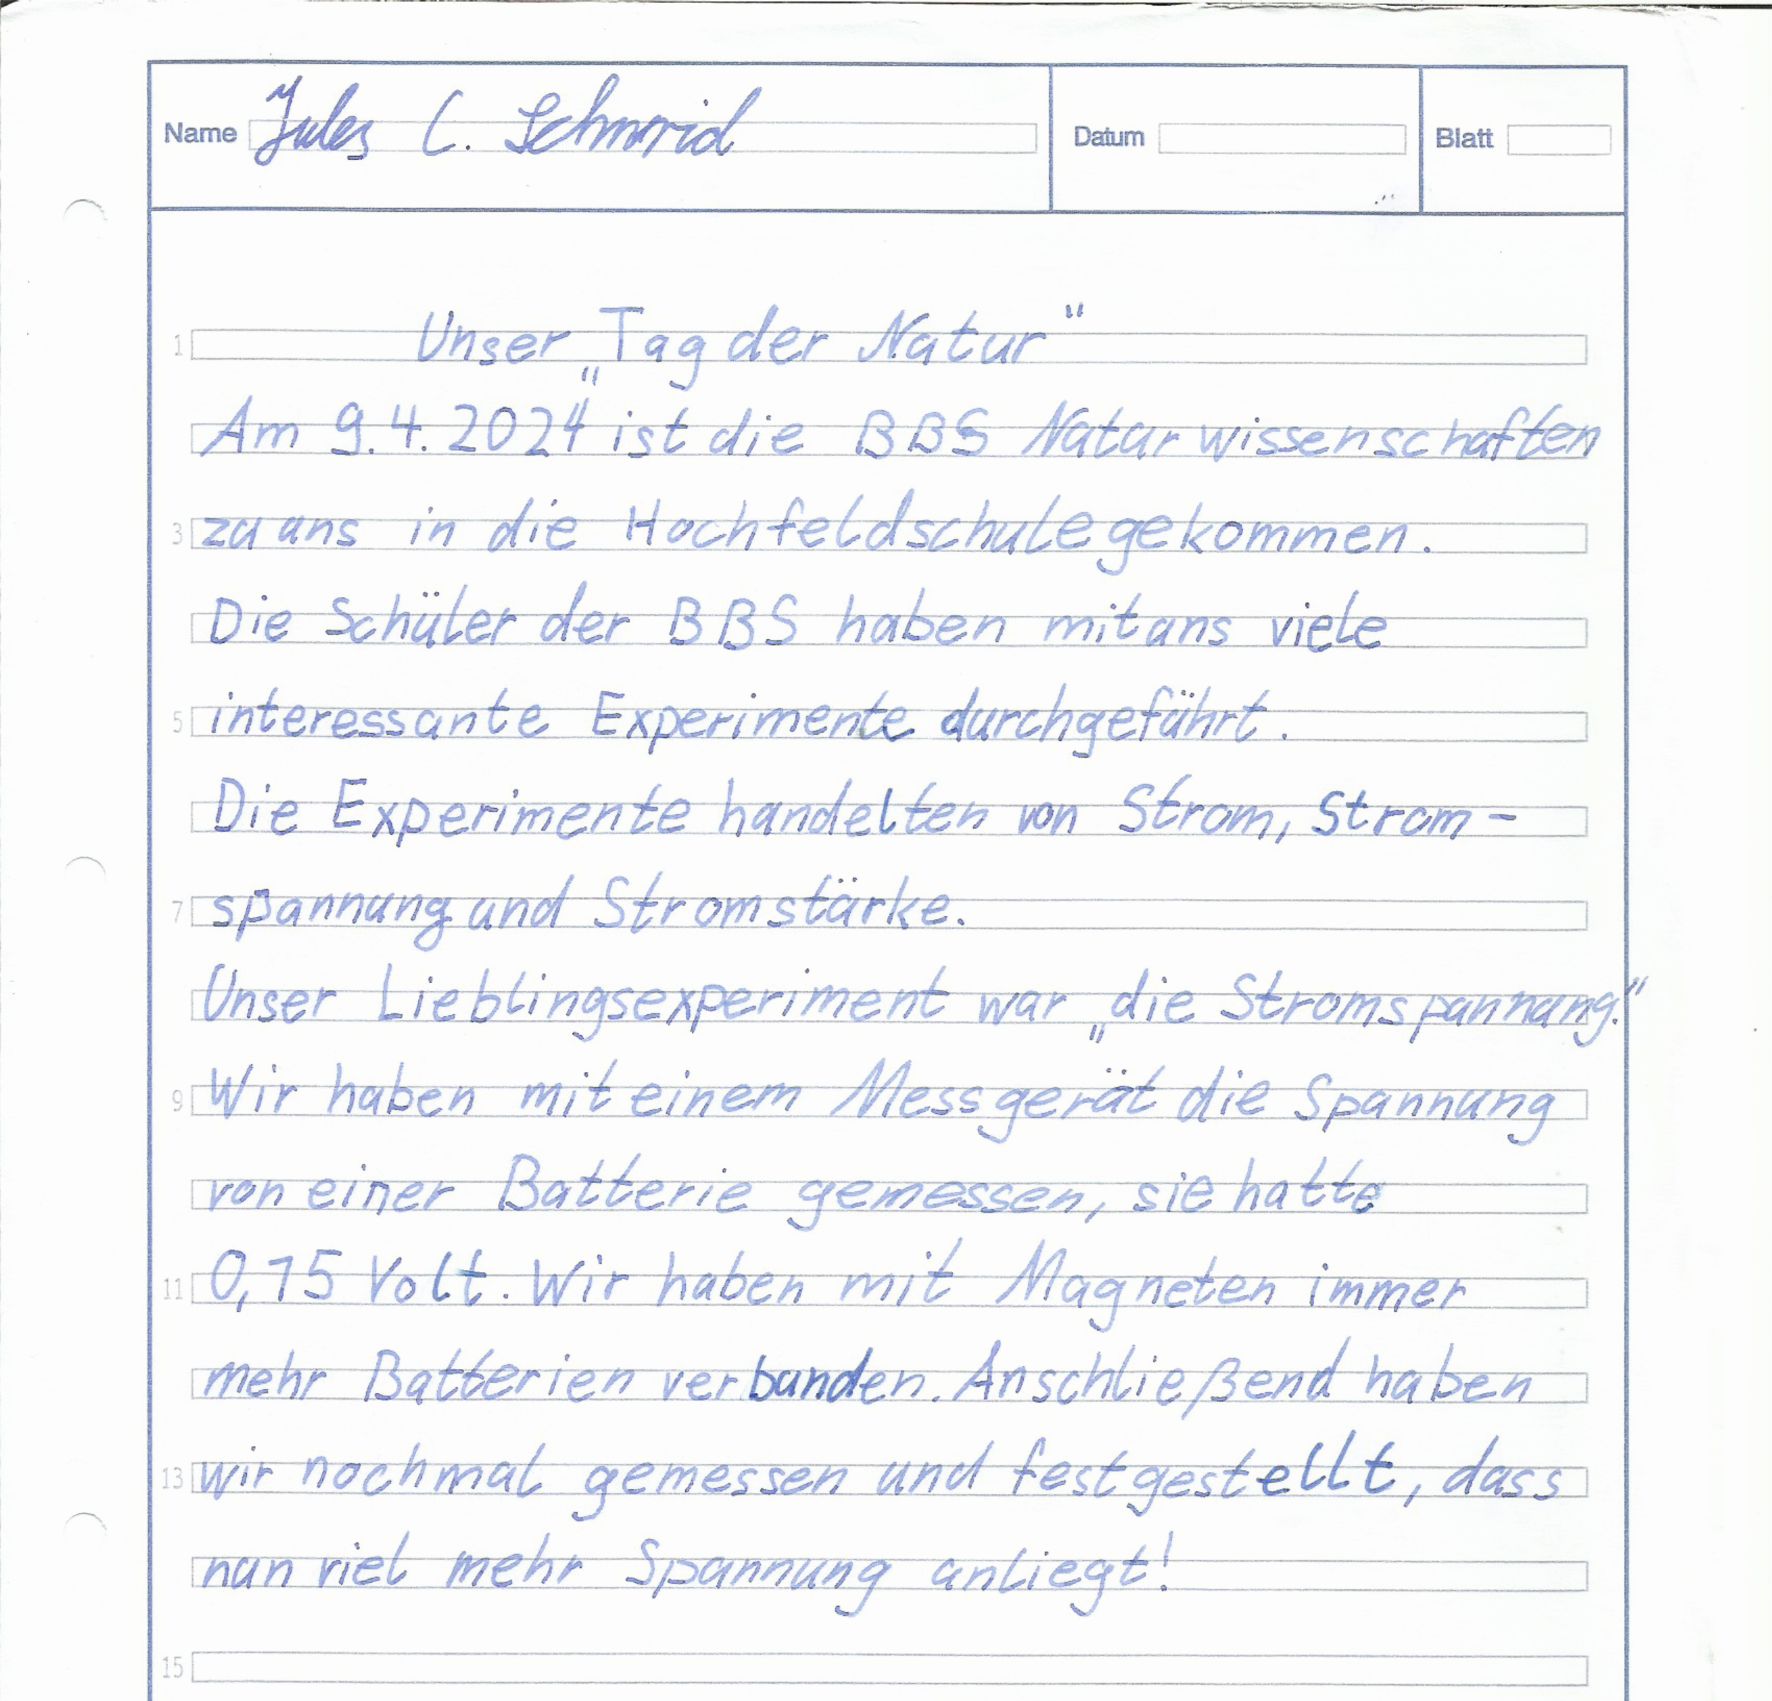 Name Jules C. Schmid Datum Blatt
1 Unser „Tag der Natur“
Am 9.4.2024 ist die BBS Naturwissenschaften
3 zu uns in die Hochfeldschule gekommen.
Die Schüler der BBS haben mit uns viele
5 interessante Experimente durchgeführt.
Die Experimente handelten von Strom, Strom-
7 spannung und Stromstärke.
Unser Lieblingsexperiment war „die Stromspannung.“
9 Wir haben mit einem Messgerät die Spannung
von einer Batterie gemessen, sie hatte
11 0,15 Volt. Wir haben mit Magneten immer
mehr Batterien verbunden. Anschließend haben
13 wir nochmal gemessen und festgestellt, dass
nun viel mehr Spannung anliegt!
15